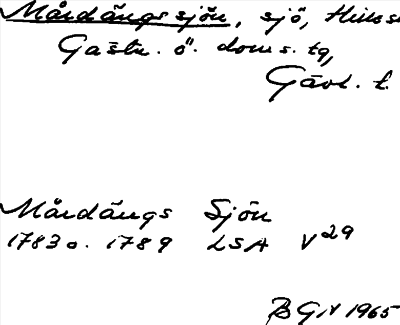 Mårdängssjön, sjö, Hille s
Gästr. ö. doms. tg,
Gävl. l.
Mårdängs Sjön
1783 o. 1789 LSA V29
BGN 1965